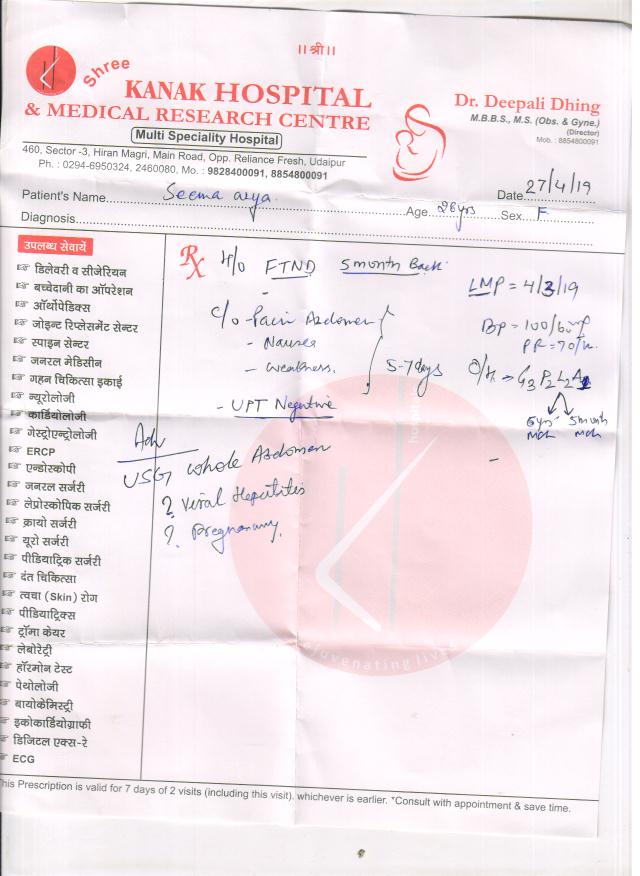 ।। श्री ।।
Shree
KANAK HOSPITAL
& MEDICAL RESEARCH CENTRE
Multi Speciality Hospital
460, Sector -3, Hiran Magri, Main Road, Opp. Reliance Fresh, Udaipur
Ph. : 0294-6950324, 2460080, Mo. : 9828400091, 8854800091
Dr. Deepali Dhing
M.B.B.S., M.S. (Obs. & Gyne.)
(Director)
Mob. : 8854800091
Date 27/4/19
Patient's Name Seema arya Age 26 yrs Sex F
Diagnosis
उपलब्ध सेवायें
डिलेवरी व सीजेरियन
बच्चेदानी का ऑपरेशन
ऑर्थोपेडिक्स
जोइन्ट रिप्लेसमेंट सेन्टर
स्पाइन सेन्टर
जनरल मेडिसीन
गहन चिकित्सा इकाई
न्यूरोलोजी
कार्डियोलोजी
गेस्ट्रोएन्ट्रोलोजी
ERCP
एन्डोस्कोपी
जनरल सर्जरी
लेप्रोस्कोपिक सर्जरी
क्रायो सर्जरी
यूरो सर्जरी
पीडियाट्रिक सर्जरी
दंत चिकित्सा
त्वचा (Skin) रोग
पीडियाट्रिक्स
ट्रॉमा केयर
लेबोरेट्री
हॉरमोन टेस्ट
पेथोलोजी
बायोकेमिस्ट्री
इकोकार्डियोग्राफी
डिजिटल एक्स-रे
ECG
Rx H/o FTND 5 month Back
LMP = 4/3/19
C/o - Pain Abdomen
BP = 100/60
PR = 70/
- Nausea
- weakness.
5-7 days
O/H → G3 P2 L2 A
6 yrs 5 month
Mch Mch
- UPT Negative
Adv
USG whole Abdomen
? Viral Hepatitis
? Pregnancy.
This Prescription is valid for 7 days of 2 visits (including this visit). whichever is earlier. *Consult with appointment & save time.